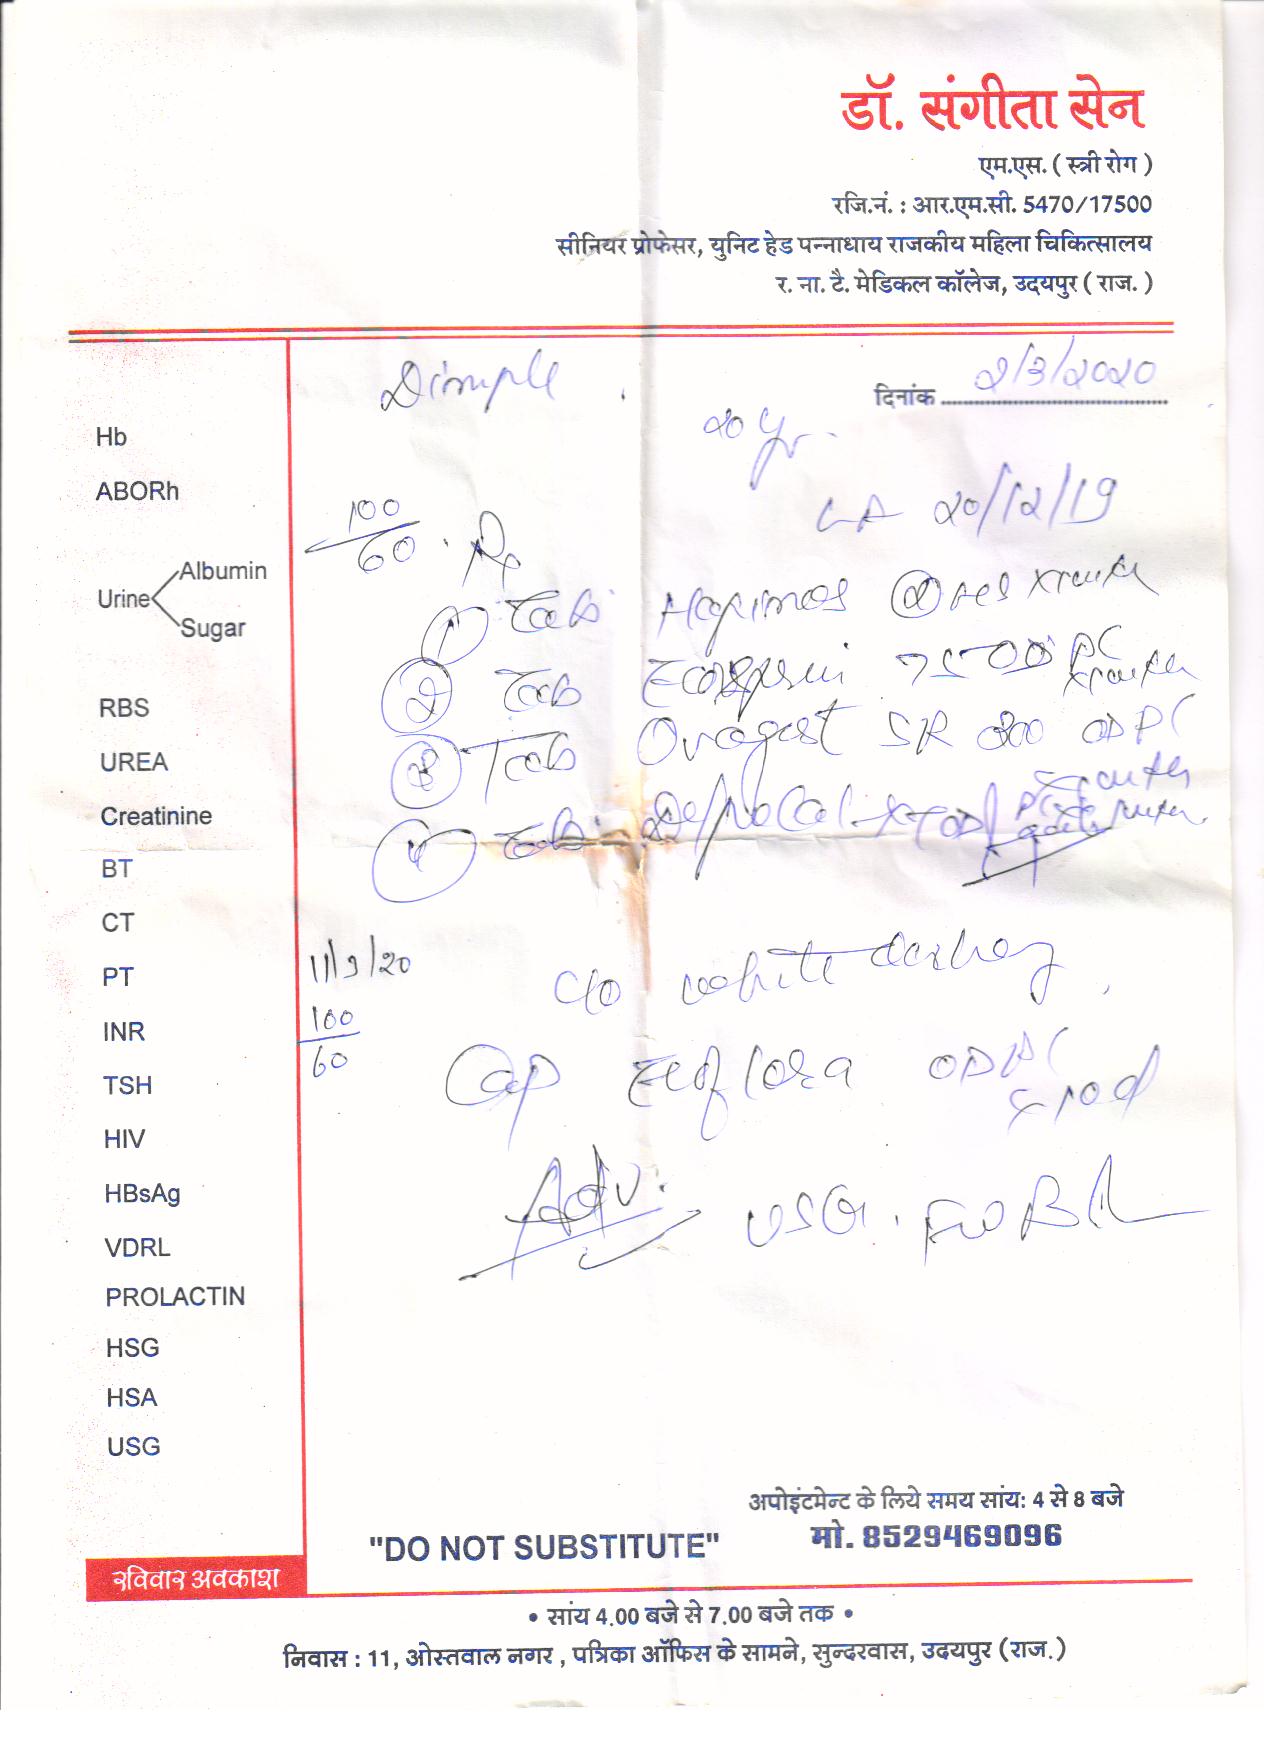 डॉ. संगीता सेन
एम.एस. ( स्त्री रोग )
रजि.नं. : आर.एम.सी. 5470/17500
सीनियर प्रोफेसर, युनिट हेड पन्नाधाय राजकीय महिला चिकित्सालय
र. ना. टै. मेडिकल कॉलेज, उदयपुर ( राज. )
Dimple
दिनांक 2/3/2020
20 yr.
20/12/19
100
60
Rx
1 Tab
2 Tab Ecosprin 75 OD PC
3 Tab Ovagest SR 200 OD PC
4 Tab
11/3/20
100
60
c/o white
Cap OD PC
Adv. USG.
Hb
ABORh
Urine
Albumin
Sugar
RBS
UREA
Creatinine
BT
CT
PT
INR
TSH
HIV
HBsAg
VDRL
PROLACTIN
HSG
HSA
USG
रविवार अवकाश
अपोइंटमेन्ट के लिये समय सांय: 4 से 8 बजे
"DO NOT SUBSTITUTE" मो. 8529469096
• सांय 4.00 बजे से 7.00 बजे तक •
निवास : 11, ओस्तवाल नगर , पत्रिका ऑफिस के सामने, सुन्दरवास, उदयपुर (राज.)